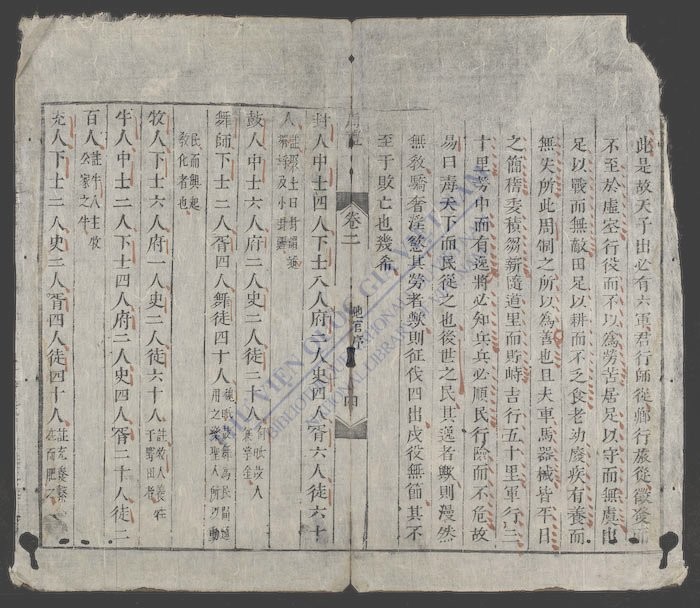 此是故天子出必有六軍君行師從卿行旅從徵發
不至於虛空行役而不以為勞苦居足以守而無虞出
足以戰而無敵田足以耕而不乏食老幼廢疾有養而
無失所此周制之所以為善也且夫車馬器械皆平日
之簡稽委積芻薪隨道里而峙吉行五十里軍行三
十里勞中而有逸將必知兵兵必順民行險而不危故
易曰毒天下而民從之也後世之民其逸者獸則漫然
無敎驕奢淫慾其勞者獸則征伐四出戍役無節其不
至于敗亡也幾希
卷二
地官序
四
封人中士四人下士八人府二人史四人胥六人徒六十
人
鼓人中士六人府二人史二人徒二十人
舞師下士二人胥四人舞徒四十人
民而興起
敎化者也
牧人下士六人府一人史二人徒六十人
牛人中士二人下士四人府二人史四人胥二十人徒二
百人
註牛人主牧
公家之牛
充人下士二人史二人胥四人徒四十人
THƯ VIỆN QUỐC GIA VIỆT NAM